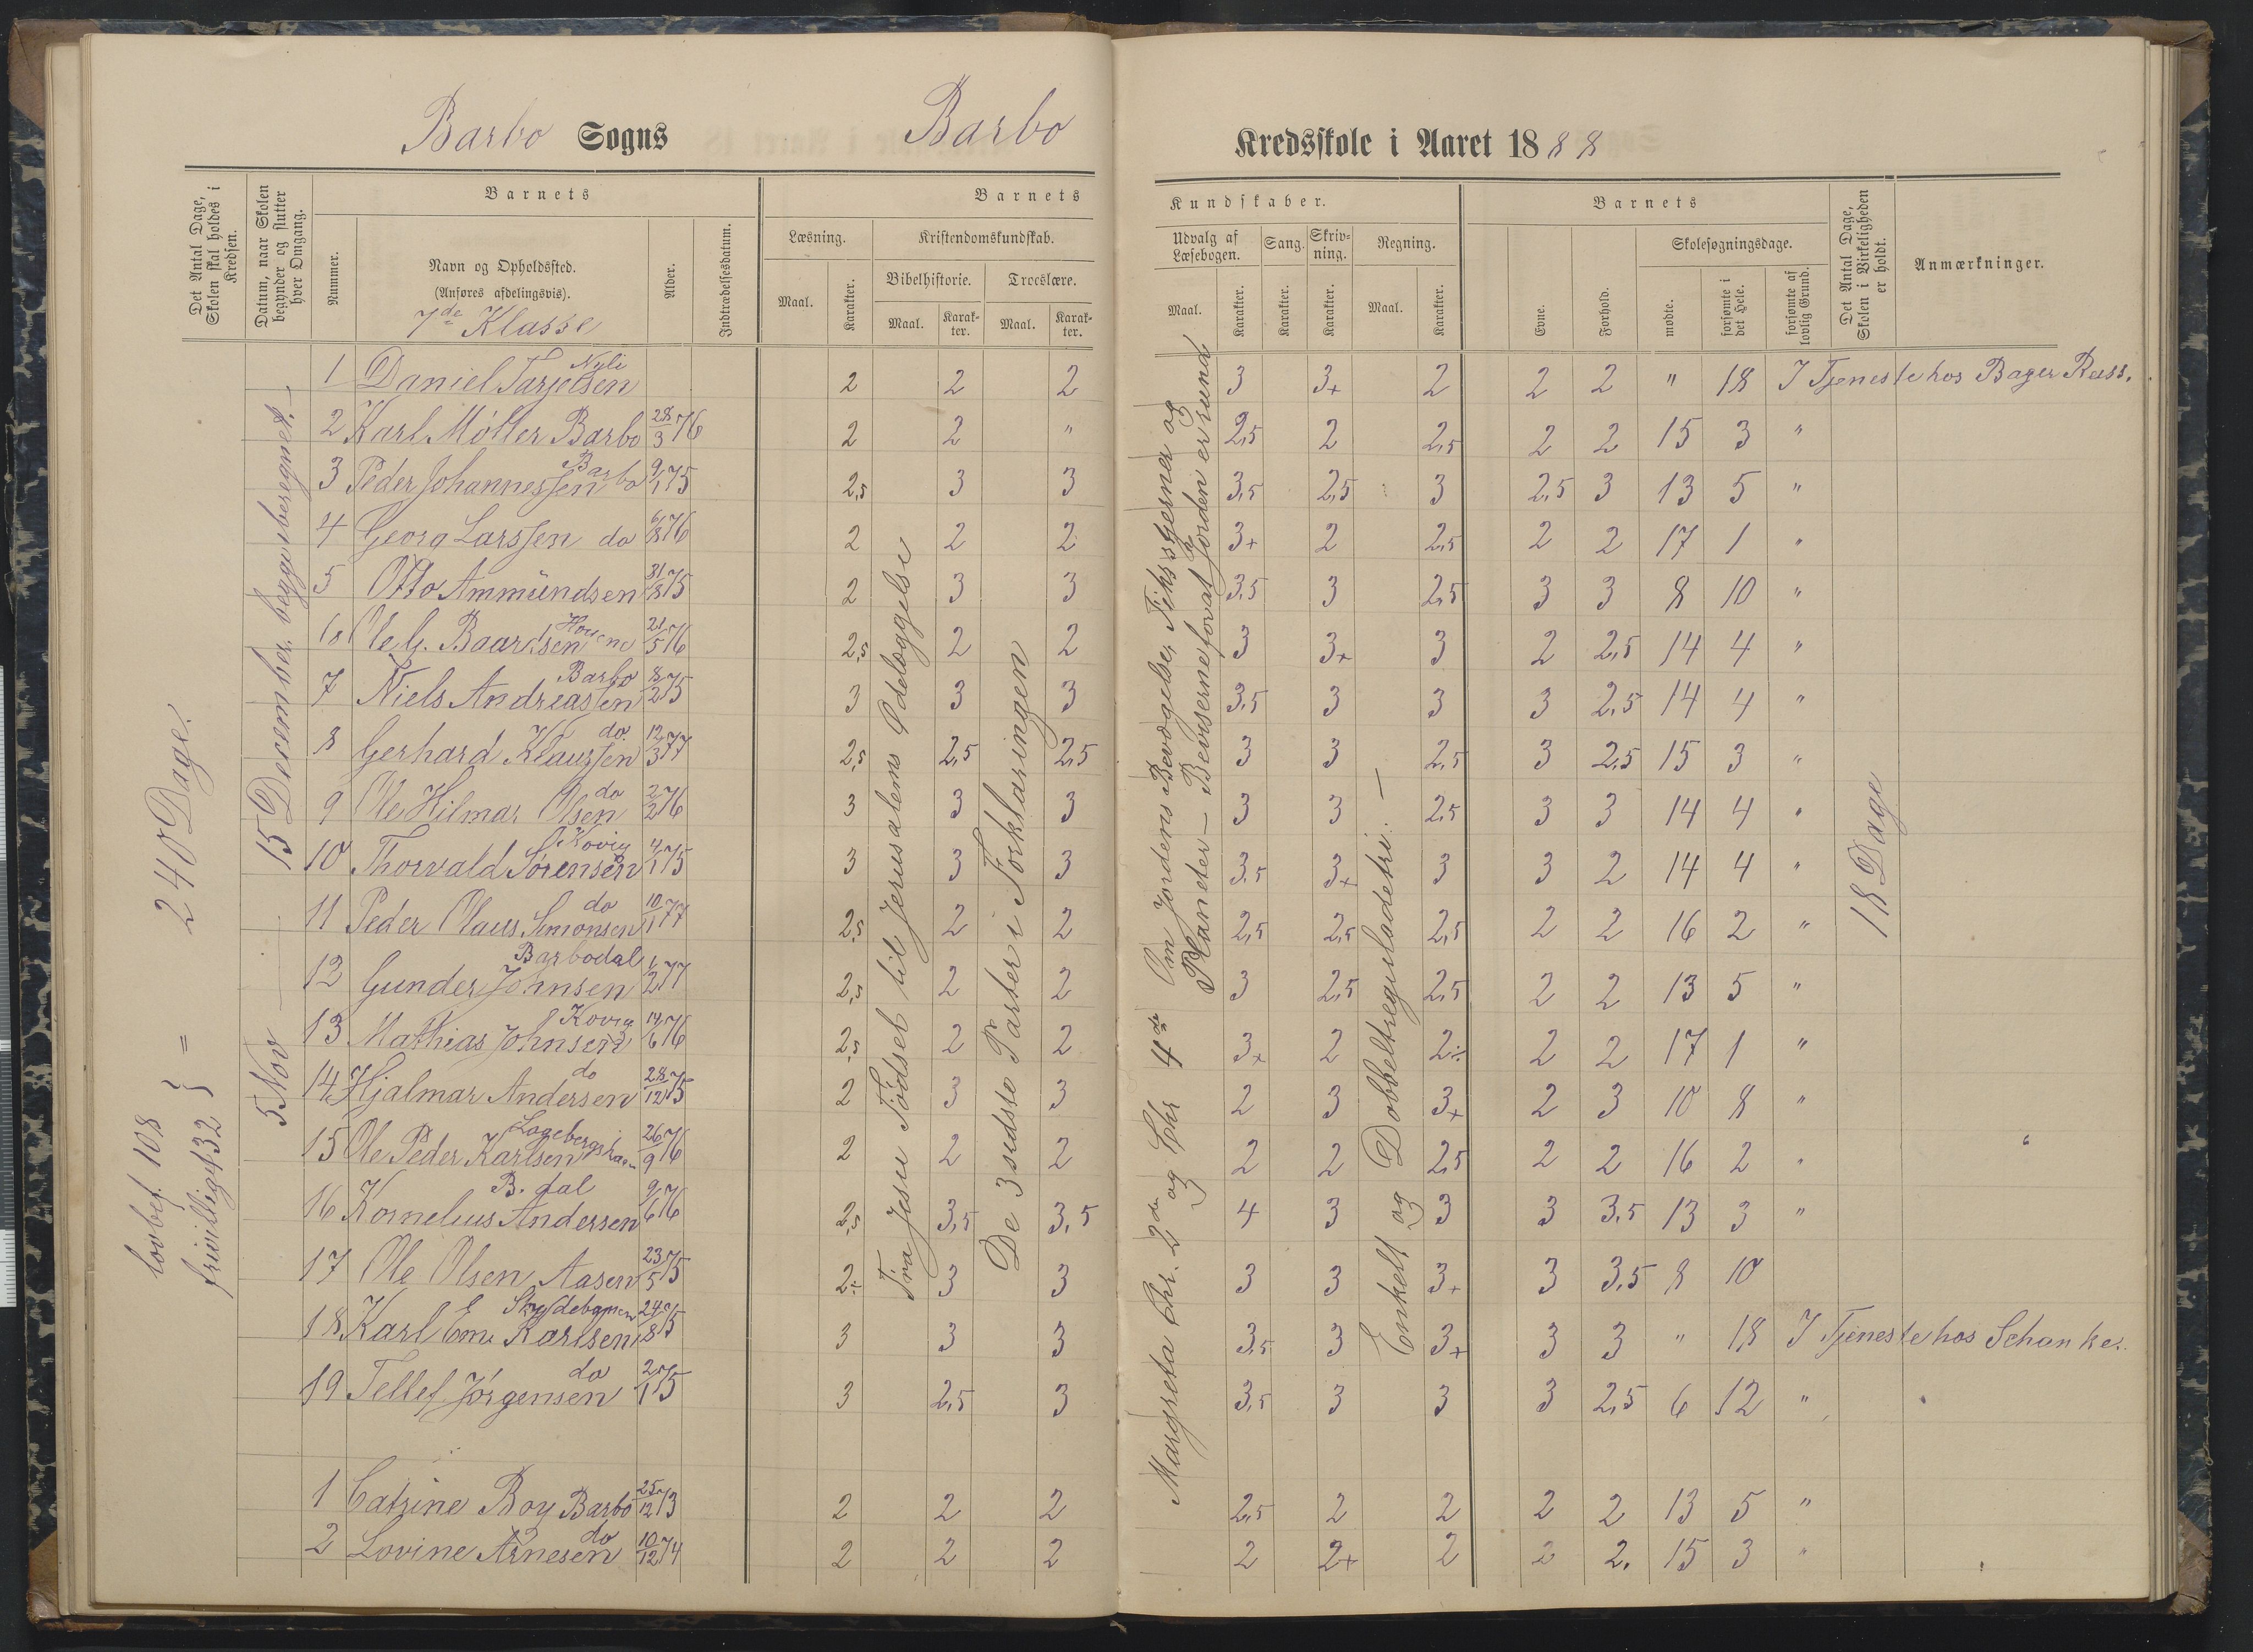 Barbo Sogns Barbo Kredsskole i Aaret 1888
Det Antal Dage, Skolen skal holdes i Kredsen.
Datum, naar Skolen begynder og slutter hver Omgang.
Barnets
Nummer.
Navn og Opholdssted.
(Anføres afdelingsvis).
7de Klasse
Alder.
Indtrædelsesdatum.
Barnets Kundskaber.
Læsning.
Maal. Karakter.
Kristendomskundskab.
Bibelhistorie. Troeslære.
Maal. Karakter. Maal. Karakter.
Udvalg af Læsebogen.
Maal. Karakter.
Sang.
Karakter.
Skrivning.
Karakter.
Regning.
Maal. Karakter.
Barnets
Evne.
Forhold.
Skolesøgningsdage.
mødte.
forsømte i det Hele.
forsømte af lovlig Grund.
Det Antal Dage, Skolen i Virkeligheden er holdt.
Anmærkninger.
lovbef. 108
frivillig 132 } = 240 Dage.
5 Nov — 15 December begge iberegnet. —
Fra Jesu Fødsel til Jerusalems Ødelæggelse
De 3 sidste Parter i Forklaringen
Margreta Chr. 2den og Chr 4de Om Jordens Bevægelse, Fiksstjerner og
Planeter — Beviserne for at Jorden er rund
Enkelt og Dobbeltreguladetri. —
18 Dage
1 Daniel Tarjeisen Nyli 2 2 2 3 3+ 2 2 2 " 18 I Tjeneste hos Bager Rass.
2 Karl Møller Barbo 28/3 76 2 2 " 2,5 2 2,5 2 2 15 3 "
3 Peder Johannessen Barbo 9/1 75 2,5 3 3 3,5 2,5 3 2,5 3 13 5 "
4 Georg Larssen do 6/8 76 2 2 2 3+ 2 2,5 2 2 17 1 "
5 Otto Ammundsen 31/8 75 2 3 3 3,5 3 2,5 3 3 8 10 "
6 Ole G. Baardsen 21/5 76 2,5 2 2 3 3+ 3 2 2,5 14 4 "
7 Niels Andreassen Barbo 8/2 75 3 3 3 3,5 3 3 3 2,5 14 4 "
8 Gerhard Klaussen do. 12/3 77 2,5 2,5 2,5 3 3 2,5 3 2,5 15 3 "
9 Ole Hilmar Olsen do 2/2 76 3 3 3 3 3 2,5 3 3 14 4 "
10 Thorvald Sørensen Kovig 4/1 75 3 3 3 3,5 3+ 3 3 2 14 4 "
11 Peder Olaus Simonsen do 10/11 77 2,5 2 2 2,5 2,5 2,5 2 2 16 2 "
12 Gunder Johnsen Barbodal 1/2 77 2,5 2 2 3 2,5 2,5 2 2 13 5 "
13 Mathias Johnsen Kovig 14/6 76 2,5 2 2 3+ 2 2÷ 2 2 17 1 "
14 Hjalmar Andersen do 28/12 75 2 3 3 2 3 3+ 2 3 10 8 "
15 Ole Peder Karlsen 26/9 76 2 2 2 2 2 2,5 2 2 16 2 "
16 Kornelius Andersen B. dal 9/6 76 2,5 3,5 3,5 4 3 3 3 3,5 13 3 "
17 Ole Olsen Aasen 23/5 75 2÷ 3 3 3 3 3+ 3 3,5 8 10
18 Karl Em. Karlsen 24/8 75 3 3 3 3,5 3 3+ 3 3 " 18 I Tjeneste hos Schanke.
19 Tellef Jørgensen do 2/1 75 3 2,5 3 3,5 3 3 3 2,5 6 12 "
1 Catrine Boy Barbo 25/12 73 2 2 2 2,5 2 2 2 2 13 5 "
2 Lovine Arnesen do 10/12 74 2 2 2 2 2+ 2 2 2. 15 3 "